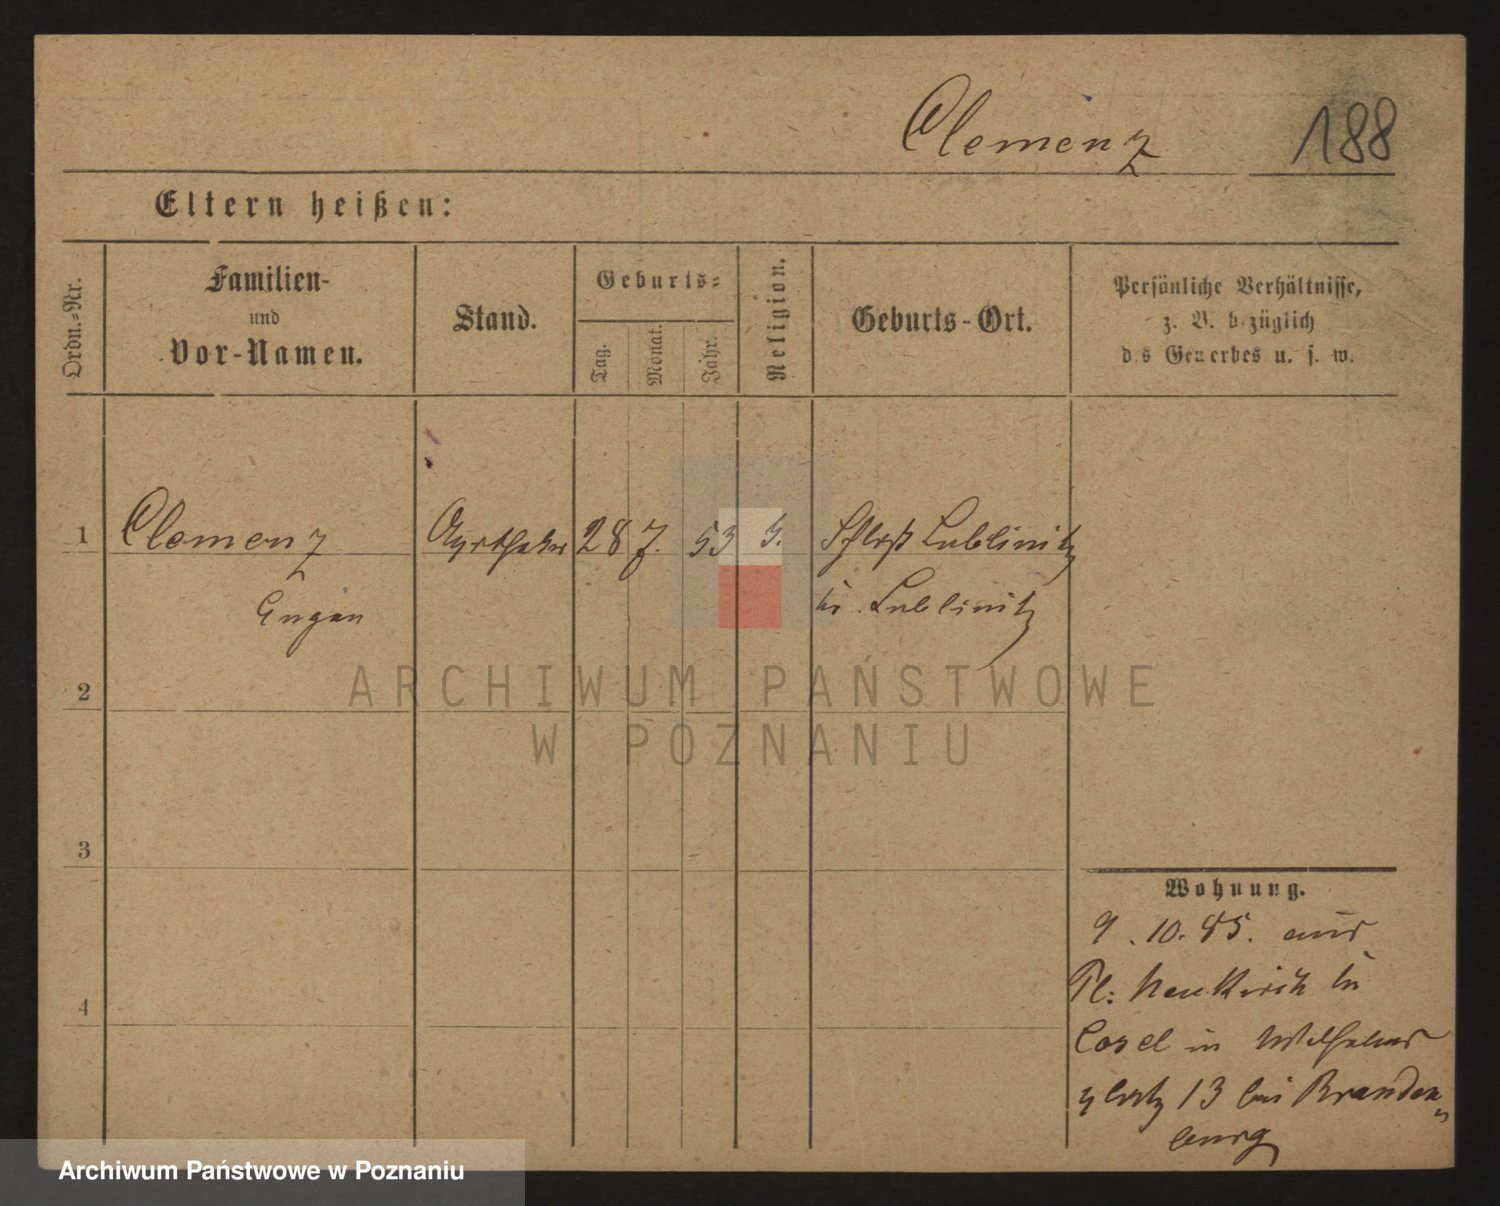 Clemenz 188
Eltern heißen:
Ordn.-Nr.
Familien-
und
Vor-Namen.
Stand.
Geburts-
Tag.
Monat.
Jahr.
Religion.
Geburts-Ort.
Persönliche Verhältnisse,
z. B. bezüglich
des Gewerbes u. s. w.
1 Clemenz Apotheker 28 7. 53 Schloß Lublinitz
Eugen Kr. Lublinitz
2
3
4
Wohnung.
9. 10. 85. aus
Pl: Neukirch Kr
Cosel in Wilhelms
platz 13 bei Branden
burg
ARCHIWUM PAŃSTWOWE
W POZNANIU
Archiwum Państwowe w Poznaniu